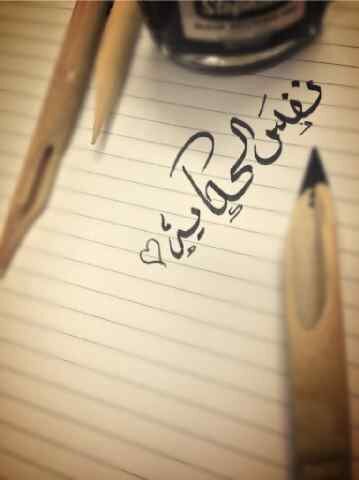 نفسَ الحكايةِ